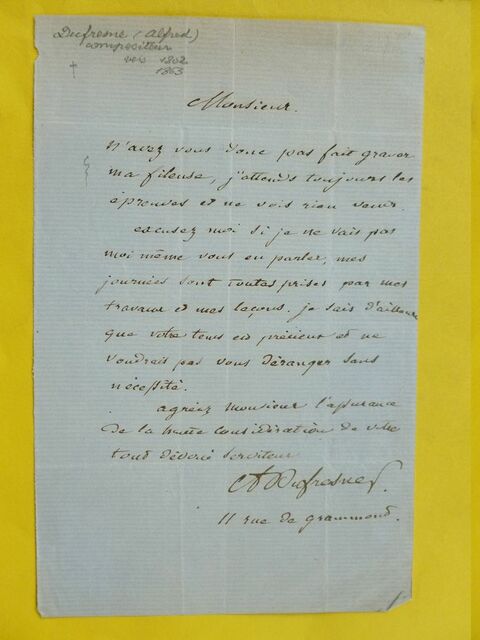 Dufresne (Alfred)
compositeur
vers 1802
1863
Monsieur.
N'avez vous donc pas fait graver
ma fileuse, j'attends toujours les
épreuves et ne vois rien venir.
excusez moi si je ne vais pas
moi même vous en parler, mes
journées sont toutes prises par mes
travaux et mes leçons. je sais d'ailleurs
que votre tems est précieux et ne
voudrais pas vous déranger sans
nécessité.
agréez monsieur l'assurance
de la haute considération de votre
tout dévoué serviteur
ADufresne
11 rue de grammont.